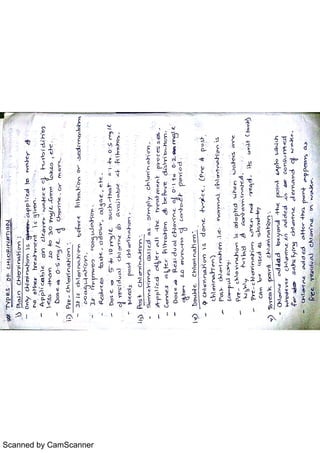 * TYPES OF CHLORINATION
1) Plain Chlorination:
Only chlorine is applied to water &
no other treatment is given.
- Applied on clear waters of turbidities
less than 20 to 30 mg/l, from lakes, etc.
- Dose → 0.5 mg/l of chlorine or more.
2) Pre-Chlorination:
- It is chlorination before filtration or sedimentation
coagulation.
- It improves coagulation
- Reduces taste, odour, algae, etc.
- Dose 5 to 10 mg/l such that 0.1 to 0.5 mg/l
of residual chlorine is available at filtration.
- Needs post chlorination.
3) Post chlorination:
- Sometimes called as simply chlorination.
- Applied after all the treatment processes.
- Comes after filtration & before distribution.
- Dose → Residual chlorine of 0.1 to 0.2 mg/l
after 20 minutes of contact period.
4) Double Chlorination:
- Chlorination is done twice. (Pre & post
chlorination).
- Plain chlorination i.e. normal chlorination is
compulsory.
- Pre chlorination is adopted when waters are
highly turbid & contaminated.
- Pre-chlorination when not reqd. its unit (tank)
can be used as standby
5) Break point chlorination:
- Chlorine added beyond the point upto which
whatever chlorine is added is consumed
for satisfying chlorine demand of water.
- Chlorine added after this point reappears as
free residual chlorine in water.
Scanned by CamScanner